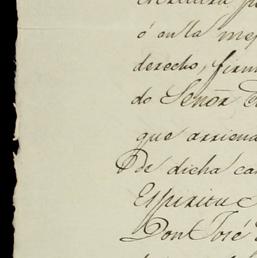 ó en la mej
derecho, firm
do Señor
que arriend
de dicha ca
Espiritu
Don José